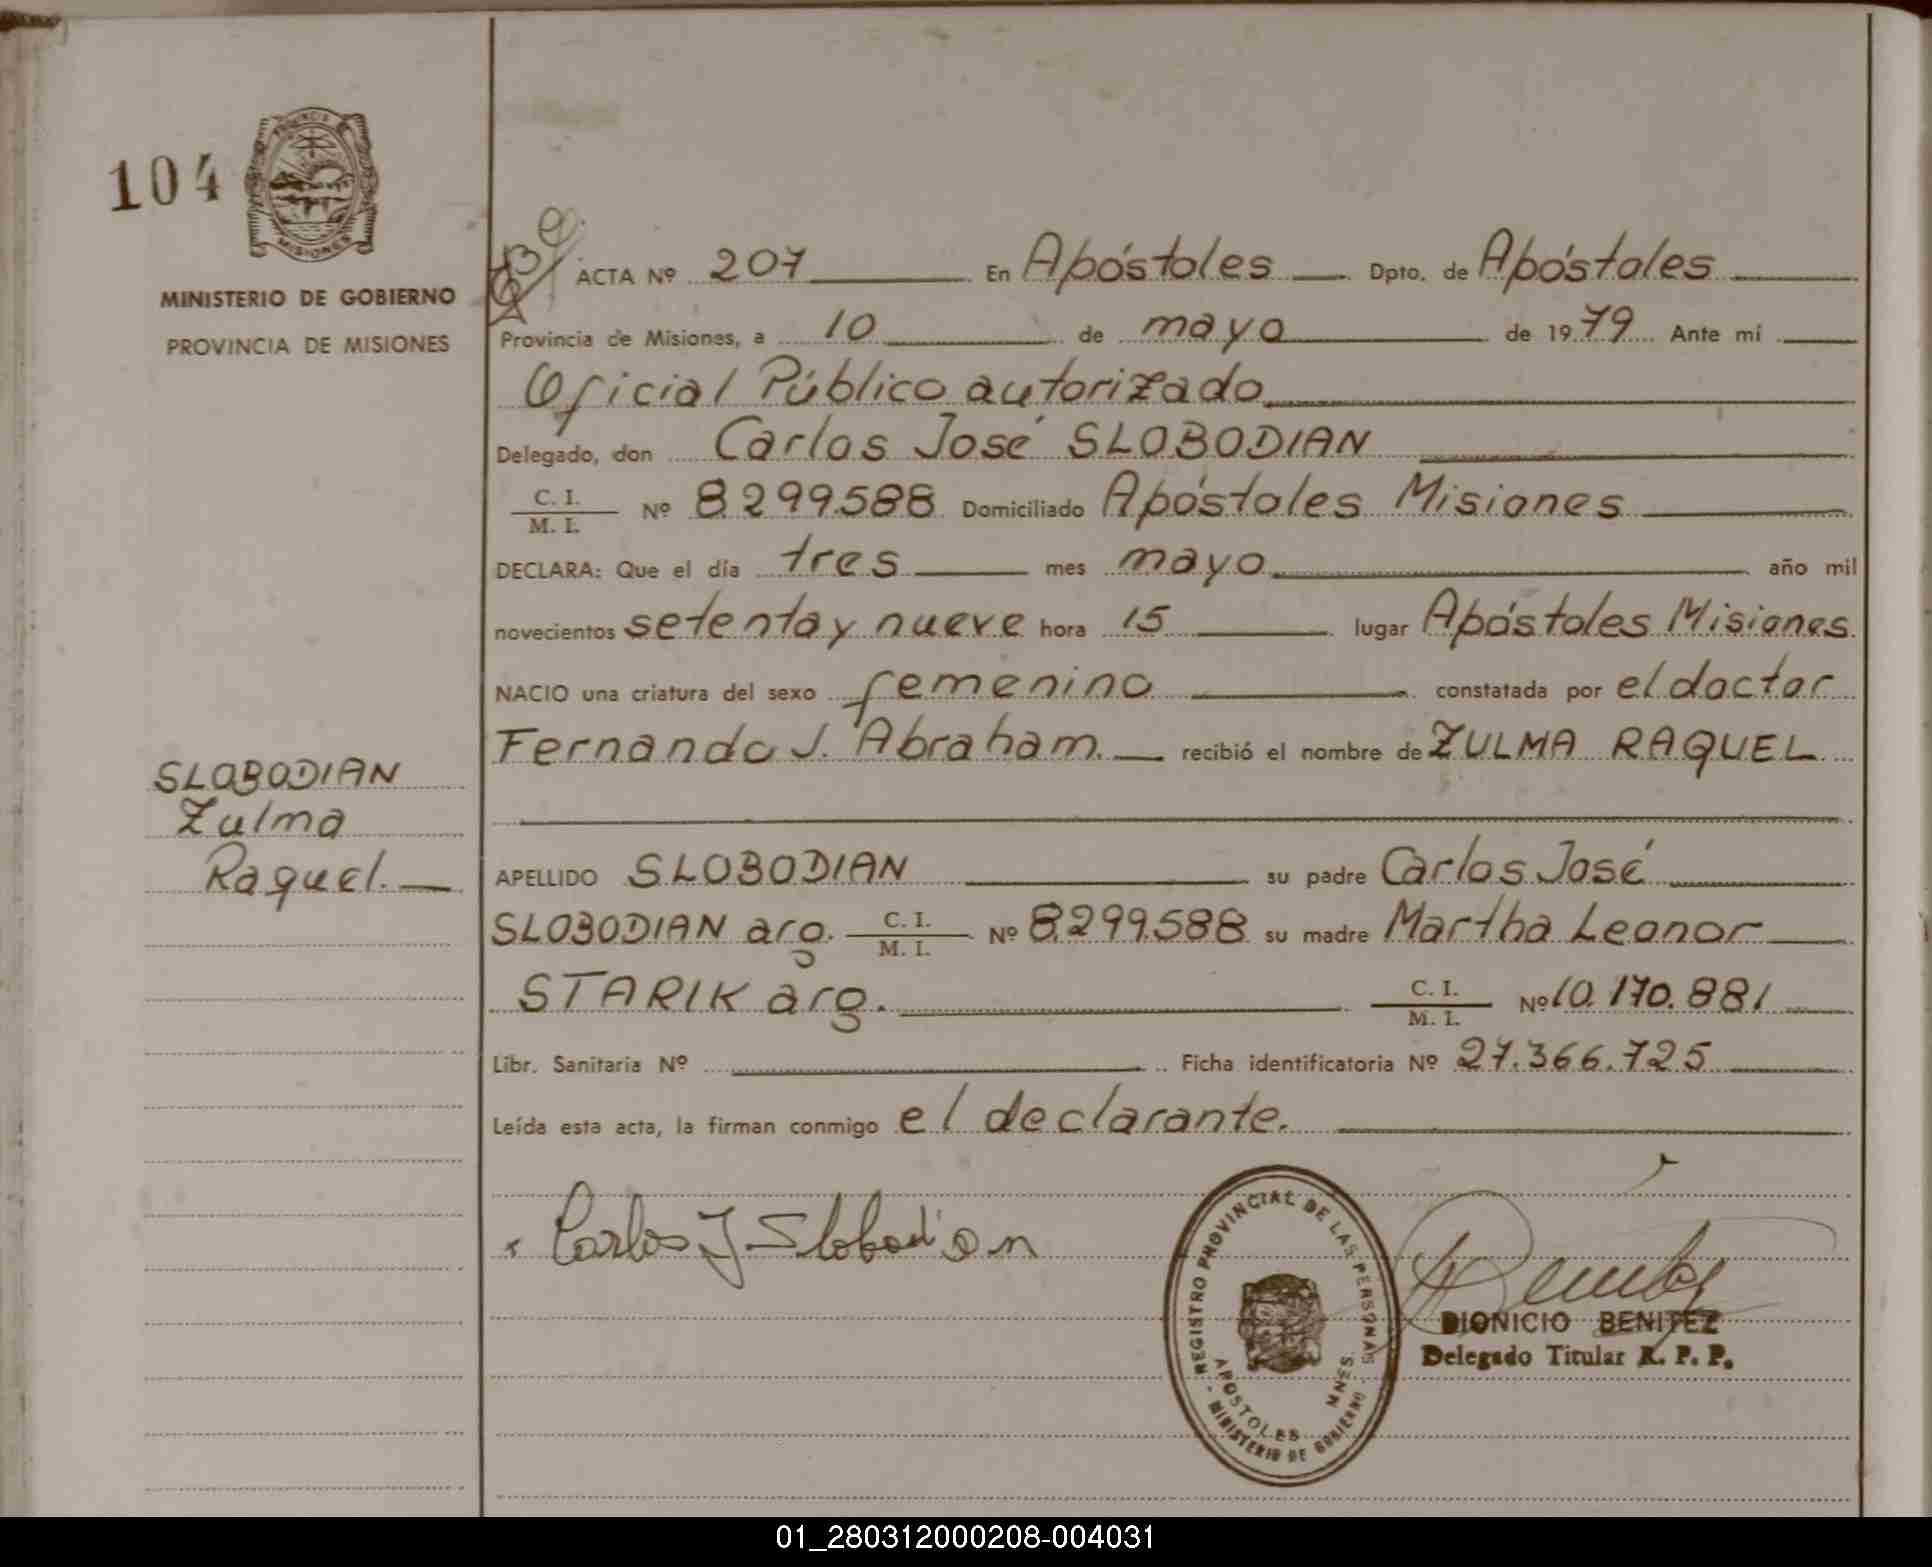 104
PROVINCIA DE
MISIONES
MINISTERIO DE GOBIERNO
PROVINCIA DE MISIONES
SLOBODIAN
Zulma
Raquel.
ACTA Nº 207 En Apóstoles Dpto. de Apóstoles
Provincia de Misiones, a 10 de mayo de 1979 Ante mí
Oficial Público autorizado
Delegado, don Carlos José SLOBODIAN
C. I.
M. I.
Nº 8.299.588 Domiciliado Apóstoles Misiones
DECLARA: Que el día tres mes mayo año mil
novecientos setenta y nueve hora 15 lugar Apóstoles Misiones
NACIO una criatura del sexo femenino constatada por el doctor
Fernando J. Abraham. recibió el nombre de ZULMA RAQUEL
APELLIDO SLOBODIAN su padre Carlos José
SLOBODIAN arg. C. I. M. I. Nº 8.299.588 su madre Martha Leonor
STARIK arg. C. I. M. I. Nº 10.170.881
Libr. Sanitaria Nº Ficha identificatoria Nº 27.366.725
Leída esta acta, la firman conmigo el declarante.
Carlos J Slobodian
REGISTRO PROVINCIAL DE LAS PERSONAS
APOSTOLES MNES.
- MINISTERIO DE GOBIERNO -
DIONICIO BENITEZ
Delegado Titular R. P. P.
01_280312000208-004031